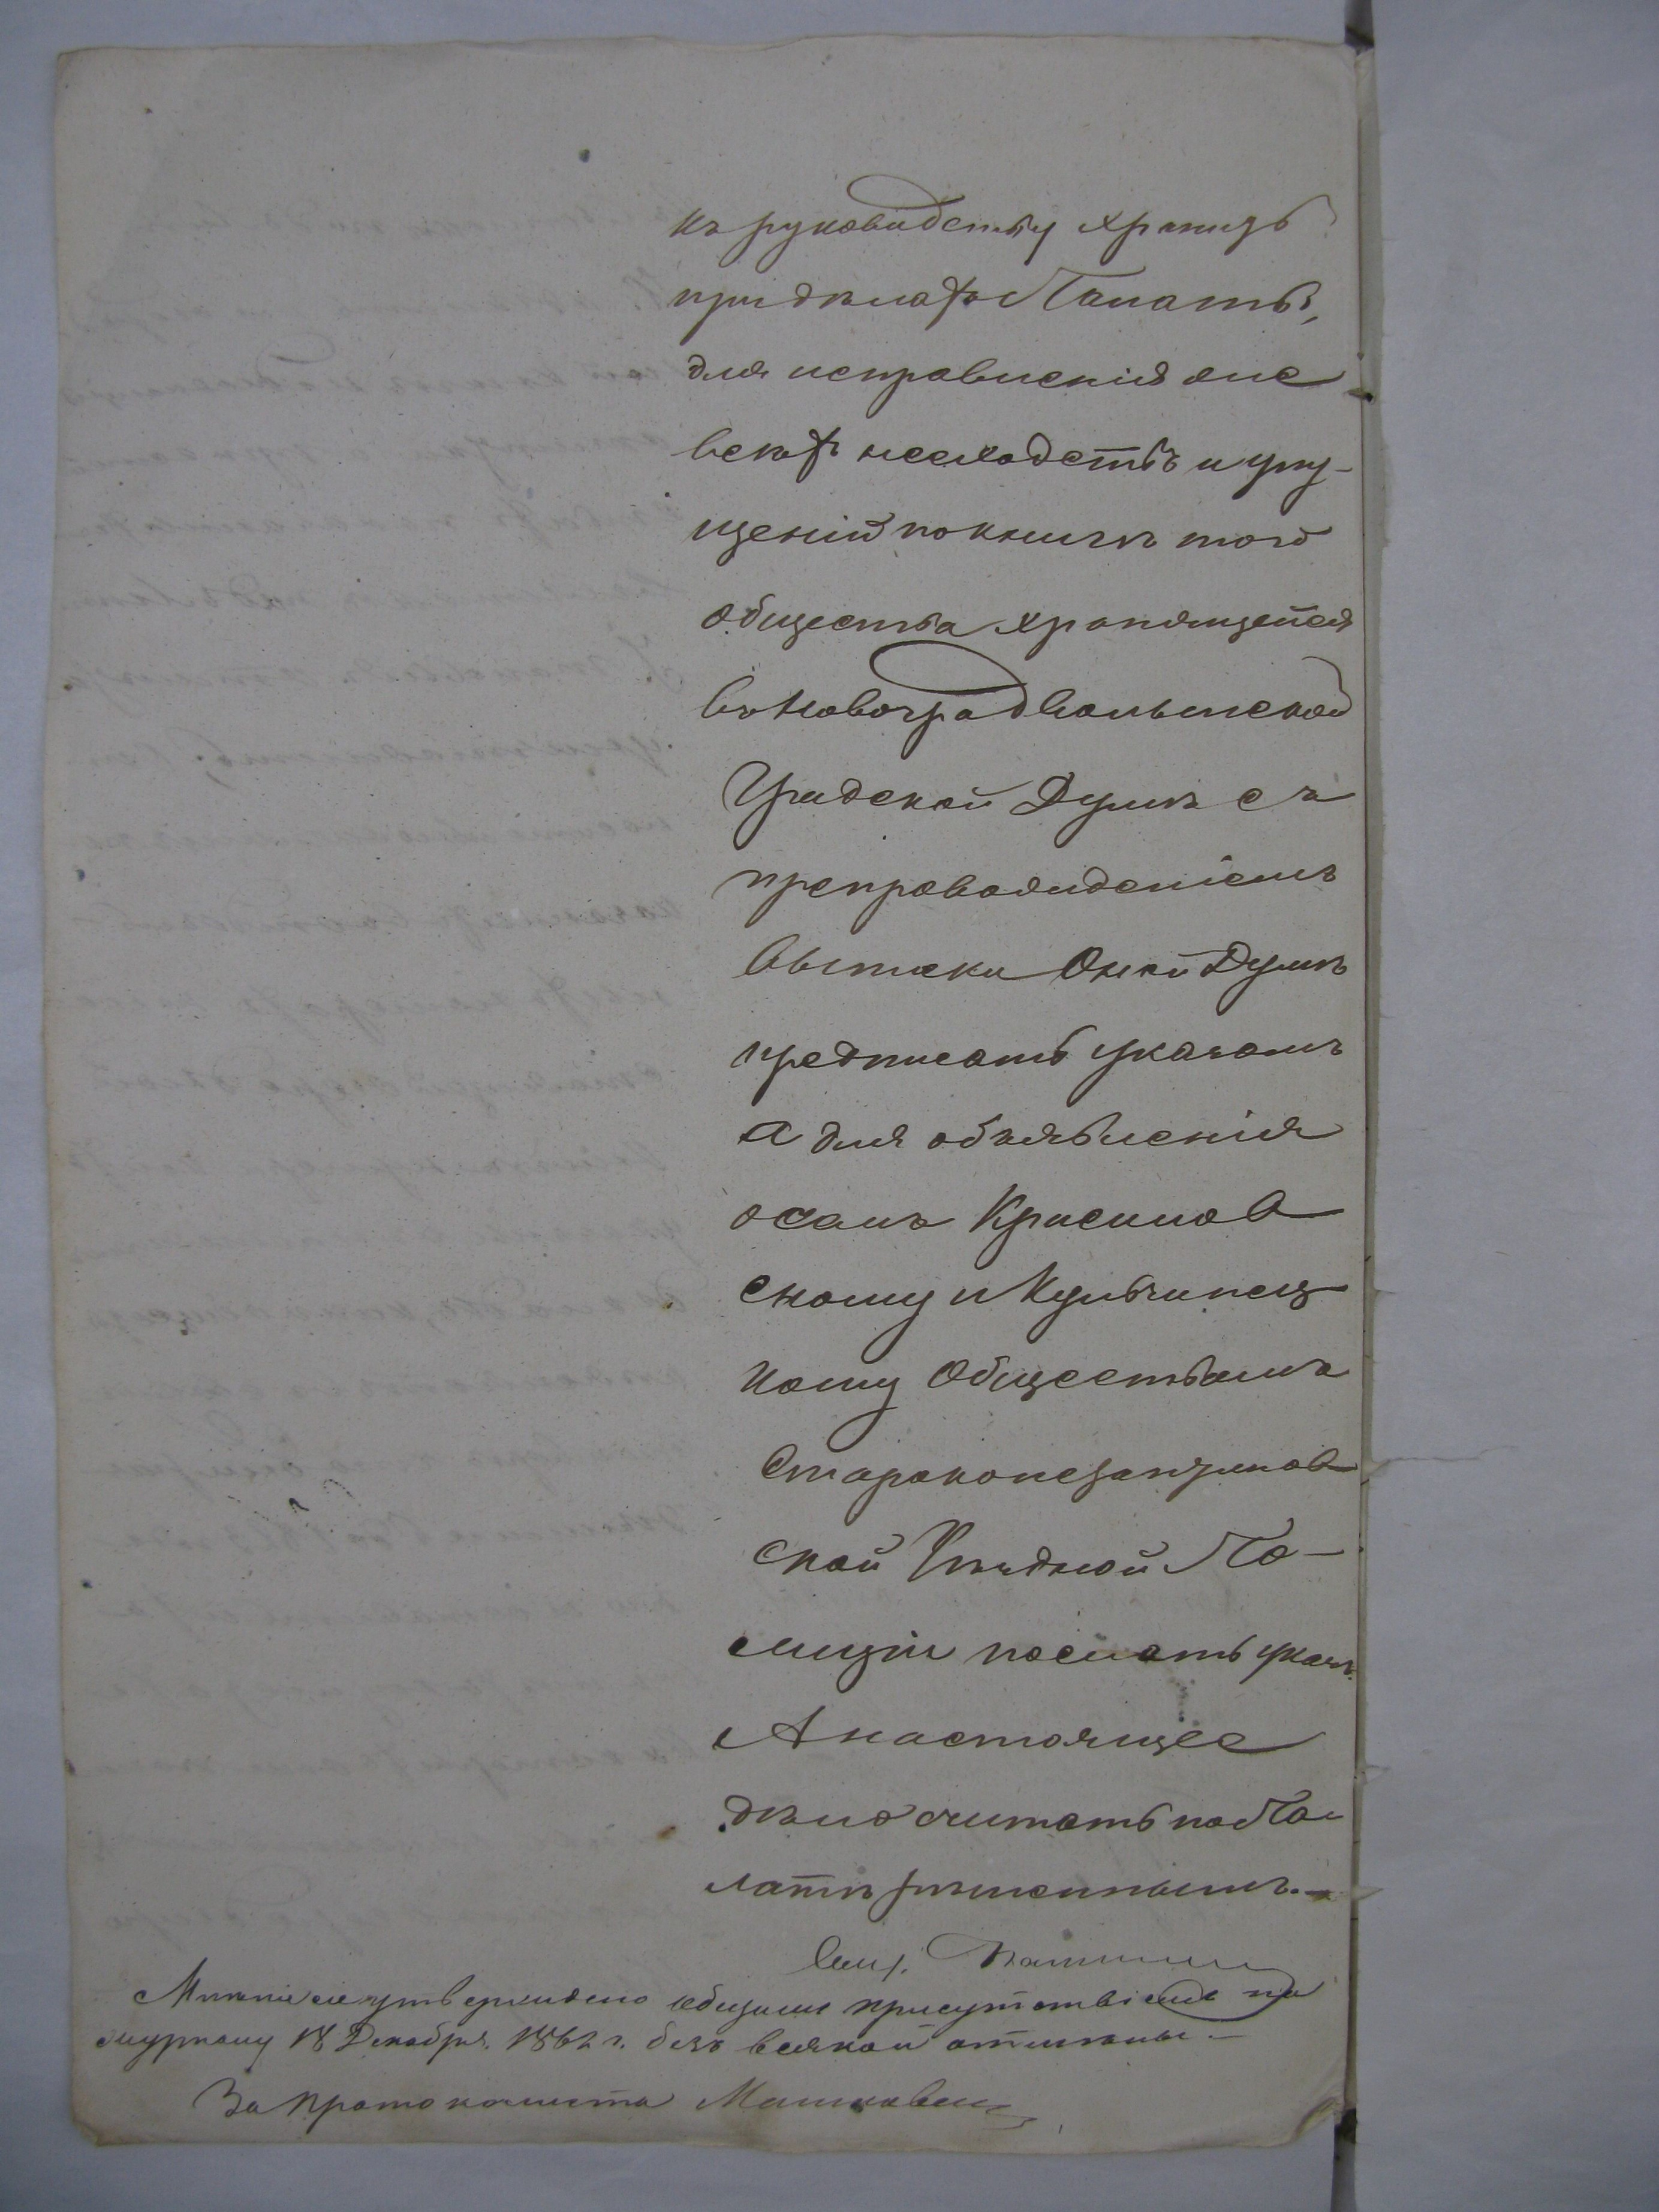 къ руководству хранить
при делахъ Палаты,
для исправленія же
всехъ несходствъ и упу-
щеній по книгѣ того
общества хранящейся
въ Новоградволынской
Градской Думѣ съ
препровожденіемъ
выписки Оной Думѣ
предписать указомъ
а для объявленія
о семъ Красилов
скому и Кульчинец
кому Обществамъ
Староконстантинов
ской Уѣздной По-
лиціи послать указъ.
А настоящее
дѣло считать по Па-
латѣ рѣшеннымъ.—
Мнѣніе сіе утверждено общимъ присутствіемъ по
журналу 18 Декабря 1862 г. безъ всякой отмѣны.—
За протоколиста